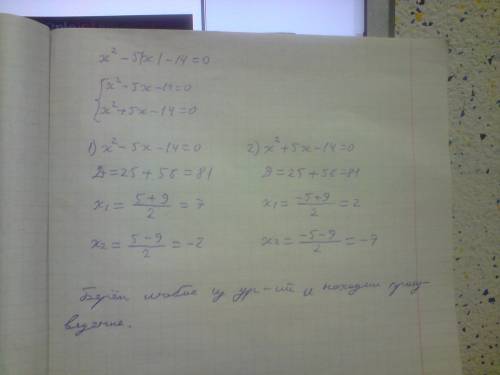 x² - 5|x| - 14 = 0
{ x² - 5x - 14 = 0
x² + 5x - 14 = 0
1) x² - 5x - 14 = 0
D = 25 + 56 = 81
x₁ = (5+9)/2 = 7
x₂ = (5-9)/2 = -2
2) x² + 5x - 14 = 0
D = 25 + 56 = 81
x₁ = (-5+9)/2 = 2
x₂ = (-5-9)/2 = -7
Берём любое из ур-ий и находим произ-
ведение.